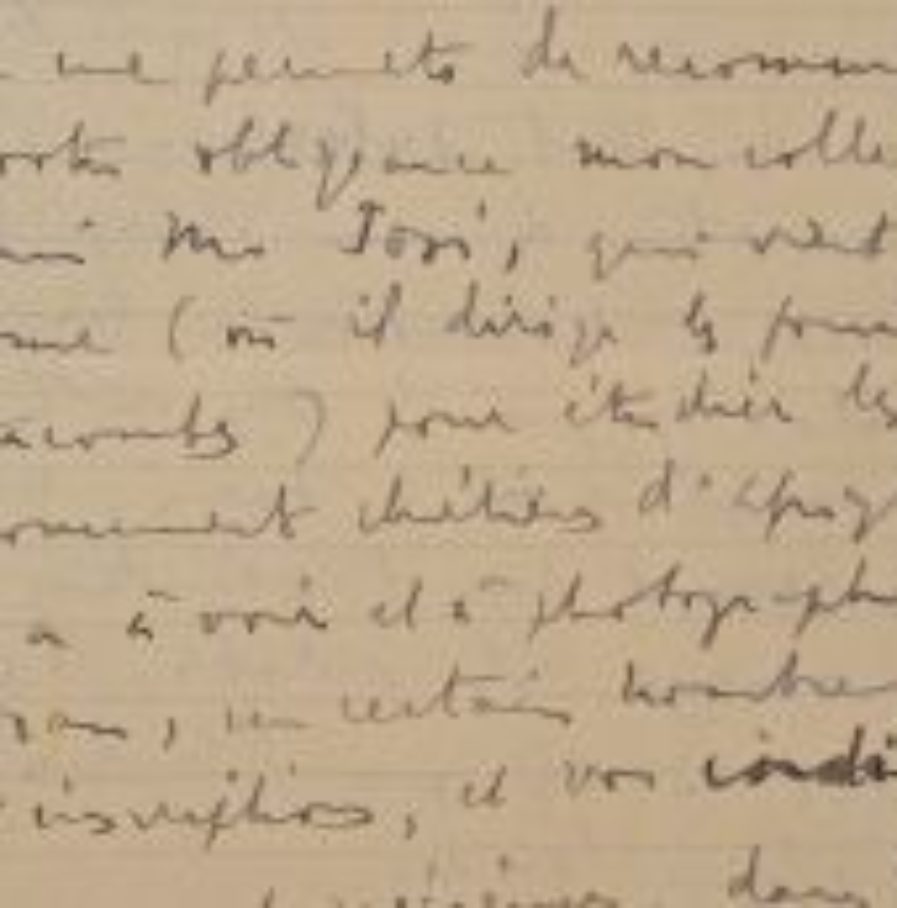 me permets de recomman
votre obligeance mon colle
ami Mr Josi, qui vient
ome (où il dirige les
acombes) pour étudier les
onument chrétiens d'Afriq
a à voir et à photographie
un certain nombre
inscriptions, et vos indi
dans